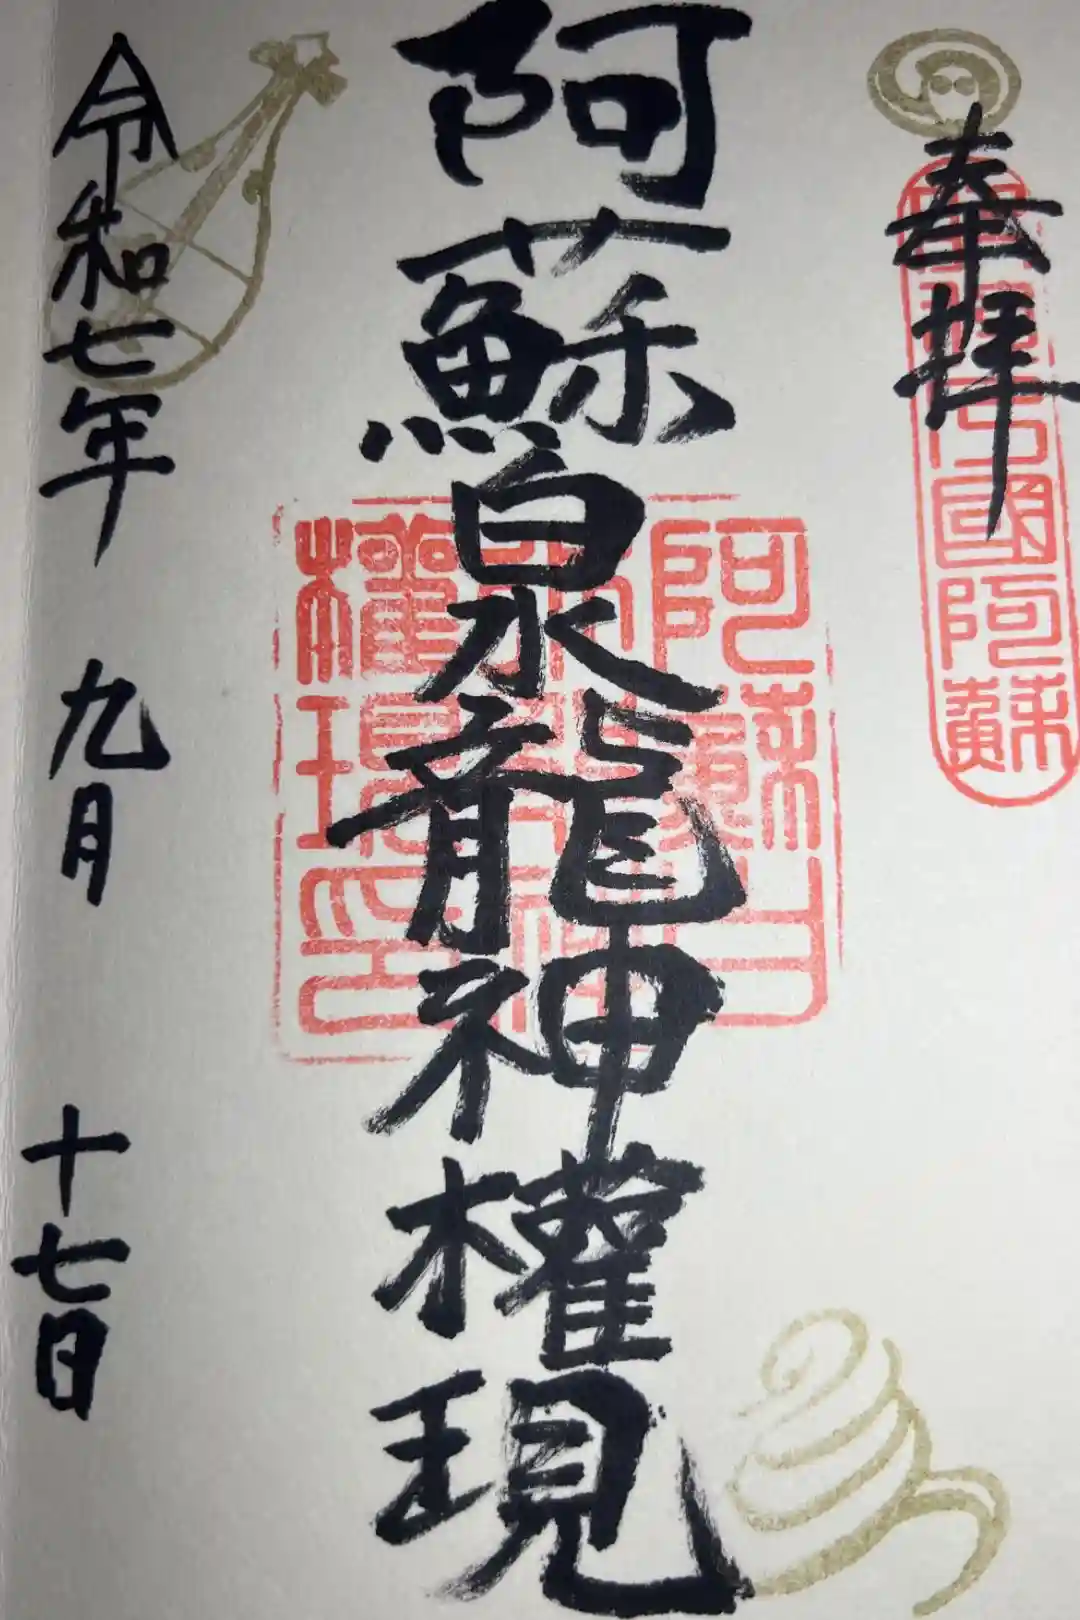 奉拝
阿蘇白水龍神權現
令和七年 九月 十七日
國阿蘇
阿蘇白
權現印